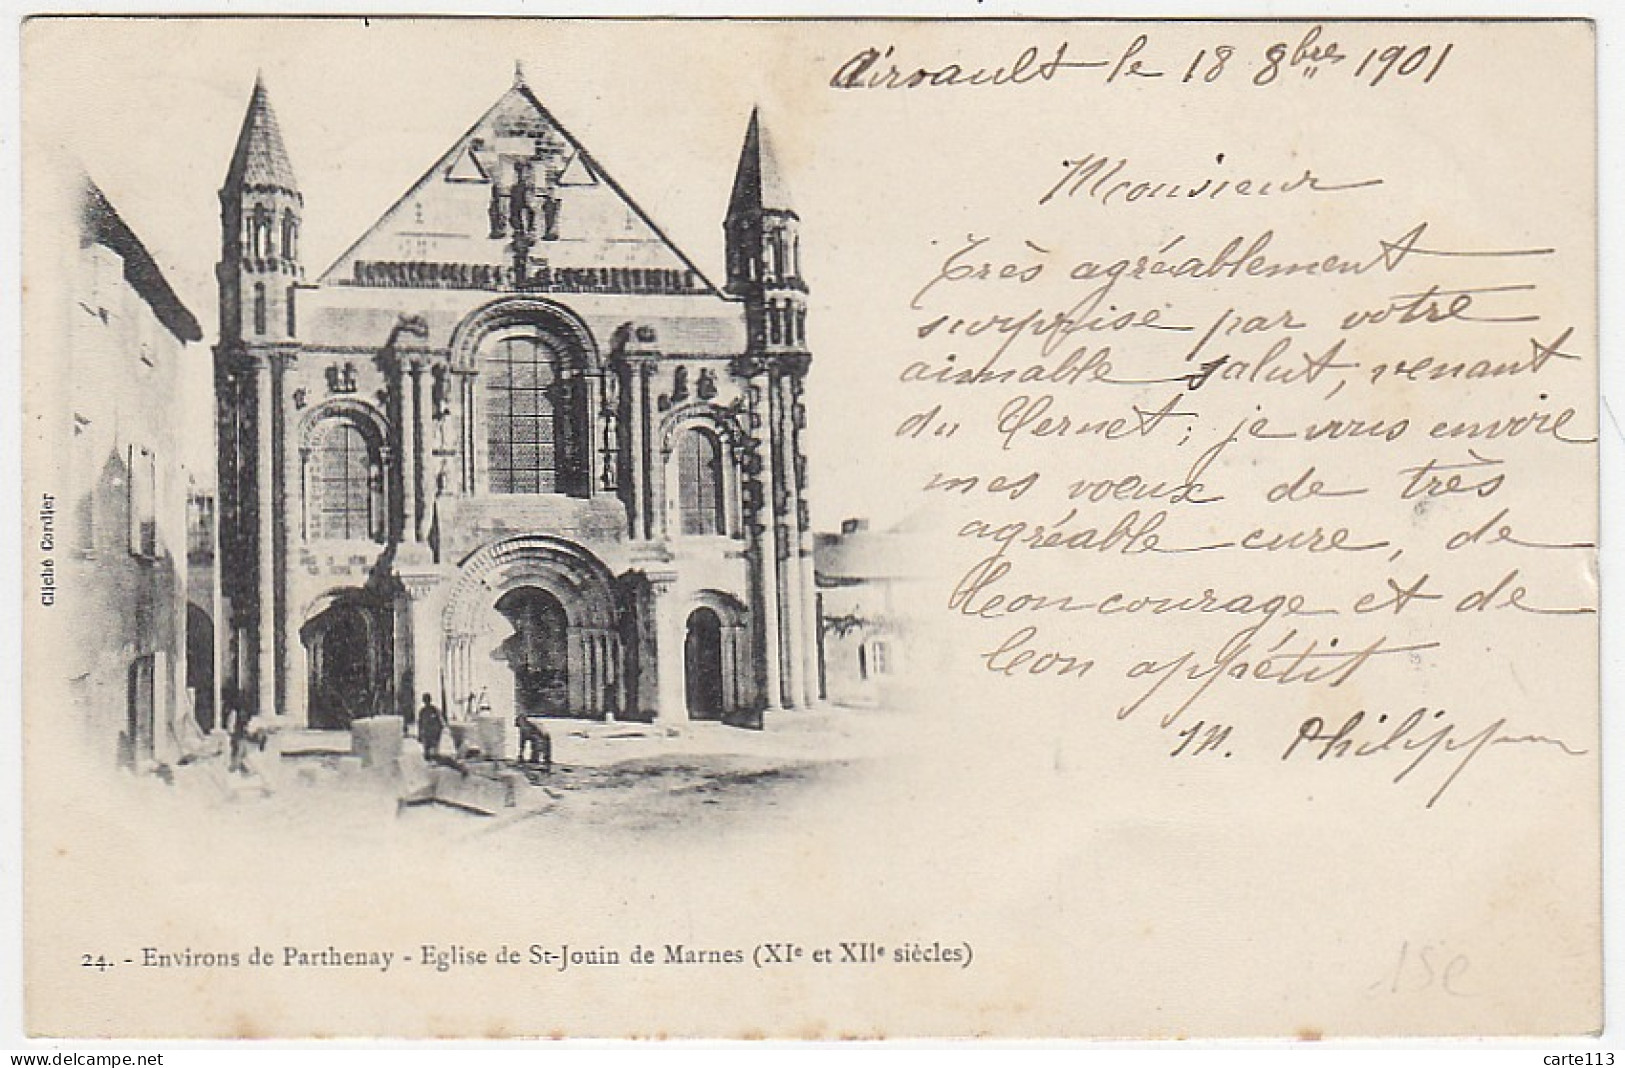 Airvault le 18 8bres 1901
Monsieur
Très agréablement
surprise par votre
aimable salut, venant
du Vernet; je vous envoie
mes voeux de très
agréable cure, de
bon courage et de
bon appétit
M. Philippon
Cliché Cordier
24. - Environs de Parthenay - Eglise de St-Jouin de Marnes (XIe et XIIe siècles)
15e
carte113